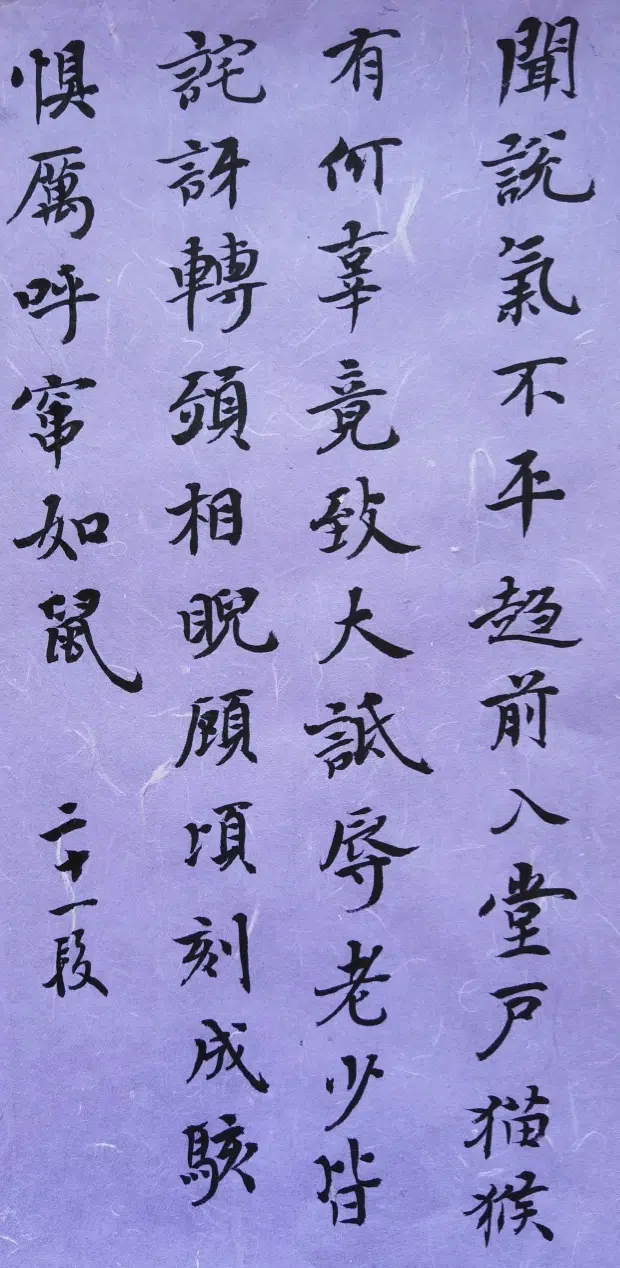 聞説氣不平趨前入堂戸猫猴
有何辜竟致大詆辱老少皆
詫訝轉頭相睨顧頃刻成駭
惧厲呼窜如鼠
二十一段